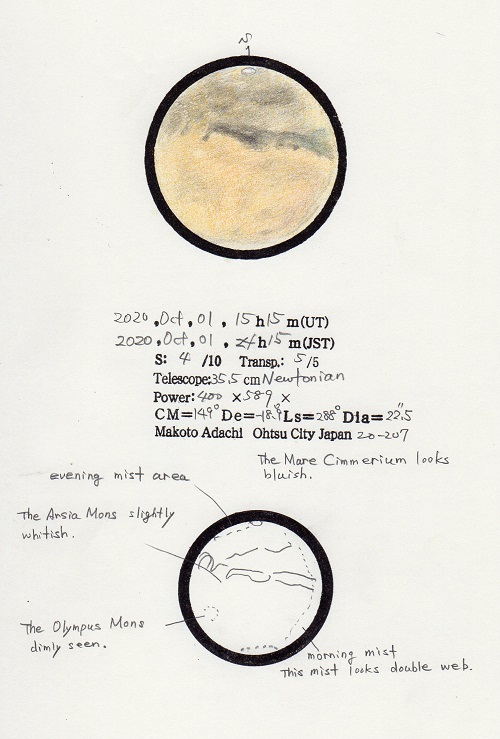 2020 ,Oct , 01 , 15 h 15 m(UT)
2020 ,Oct , 01 , 24 h 15 m(JST)
S: 4 /10 Transp.: 5 /5
Telescope:35.5 cm Newtonian
Power: 400 × 589 ×
CM=149° De=-18.9° Ls=288° Dia= 22".5
Makoto Adachi Ohtsu City Japan 20-207
The Mare Cimmerium looks
bluish.
evening mist area
The Arsia Mons slightly
whitish.
The Olympus Mons
dimly seen.
morning mist
This mist looks double web.